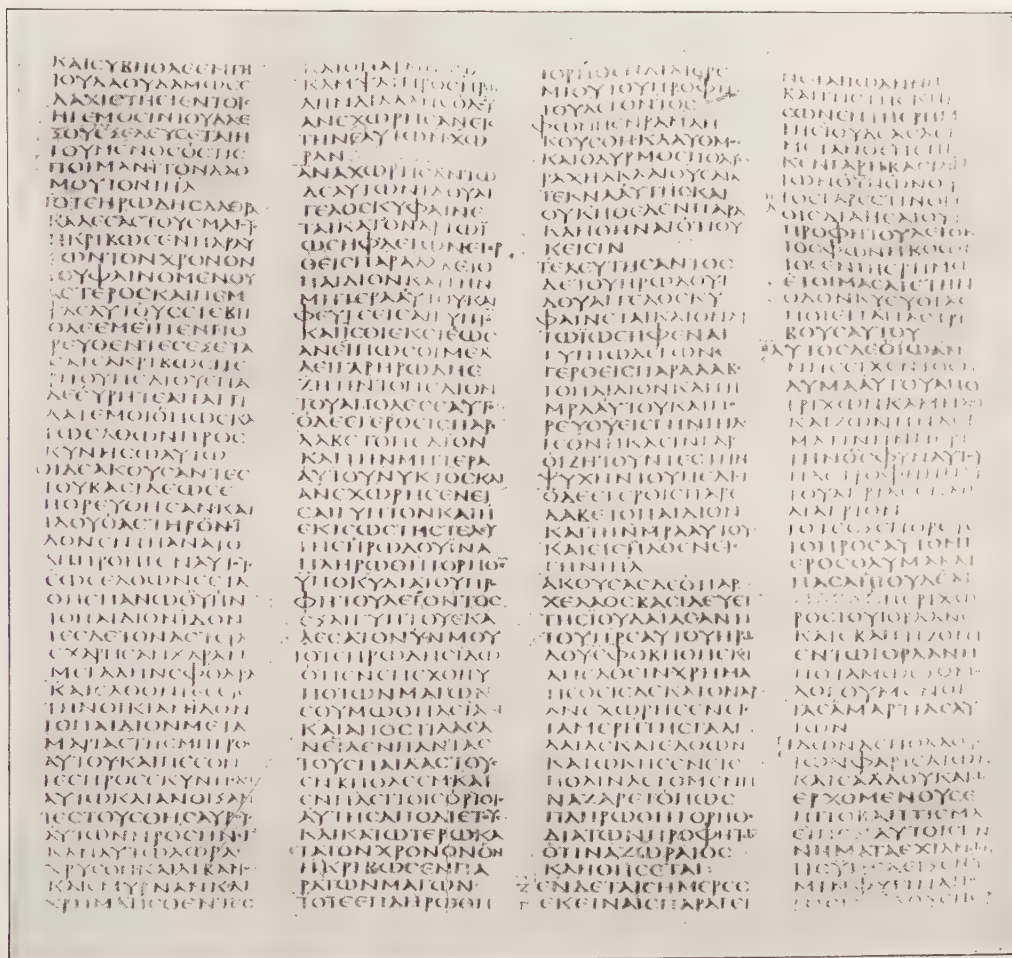 ΚΑΙΣΥΒΗΘΛΕΕΜΓΗ
ΙΟΥΔΑΟΥΔΑΜΩΣΕ
ΛΑΧΙΣΤΗΕΙΕΝΤΟΙΣ
ΗΓΕΜΟΣΙΝΙΟΥΔΑΕ
ΣΟΥΕΞΕΛΕΥΣΕΤΑΙΗ
ΓΟΥΜΕΝΟΣΟΣΤΙΣ
ΠΟΙΜΑΝΙΤΟΝΛΑΟ
ΜΟΥΤΟΝΙΗΛ
ΤΟΤΕΗΡΩΔΗΣΛΑΘΡΑ
ΚΑΛΕΣΑΣΤΟΥΣΜΑΓΟΥΣ
ΗΚΡΙΒΩΣΕΝΠΑΡΑΥ
ΤΩΝΤΟΝΧΡΟΝΟΝ
ΤΟΥΦΑΙΝΟΜΕΝΟΥ
ΑΣΤΕΡΟΣΚΑΙΠΕΜ
ΨΑΣΑΥΤΟΥΣΕΙΣΒΗ
ΘΛΕΕΜΕΙΠΕΝΠΟ
ΡΕΥΘΕΝΤΕΣΕΞΕΤΑ
ΣΑΤΕΑΚΡΙΒΩΣΠΕ
ΡΙΤΟΥΠΑΙΔΙΟΥΕΠΑ
ΔΕΕΥΡΗΤΕΑΠΑΓΓΙ
ΛΑΤΕΜΟΙΟΠΩΣΚΑ
ΓΩΕΛΘΩΝΠΡΟΣ
ΚΥΝΗΣΩΑΥΤΩ
ΟΙΔΕΑΚΟΥΣΑΝΤΕΣ
ΤΟΥΒΑΣΙΛΕΩΣΕ
ΠΟΡΕΥΘΗΣΑΝΚΑΙ
ΙΔΟΥΟΑΣΤΗΡΟΝΙ
ΔΟΝΕΝΤΗΑΝΑΤΟ
ΛΗΠΡΟΗΓΕΝΑΥΤΟΥΣ
ΕΩΣΕΛΘΩΝΕΣΤΑ
ΘΗΕΠΑΝΩΟΥΗΝ
ΤΟΠΑΙΔΙΟΝΙΔΟΝ
ΤΕΣΔΕΤΟΝΑΣΤΕΡΑ
ΕΧΑΡΗΣΑΝΧΑΡΑΝ
ΜΕΓΑΛΗΝΣΦΟΔΡΑ
ΚΑΙΕΛΘΟΝΤΕΣΕΙΣ
ΤΗΝΟΙΚΙΑΝΙΔΟΝ
ΤΟΠΑΙΔΙΟΝΜΕΤΑ
ΜΑΡΙΑΣΤΗΣΜΗΤΡΟΣ
ΑΥΤΟΥΚΑΙΠΕΣΟΝ
ΤΕΣΠΡΟΣΕΚΥΝΗΣΑΝ
ΑΥΤΩΚΑΙΑΝΟΙΞΑΝ
ΤΕΣΤΟΥΣΘΗΣΑΥΡΟΥΣ
ΑΥΤΩΝΠΡΟΣΗΝΕΓ
ΚΑΝΑΥΤΩΔΩΡΑ
ΧΡΥΣΟΝΚΑΙΛΙΒΑΝΟΝ
ΚΑΙΣΜΥΡΝΑΝΚΑΙ
ΧΡΗΜΑΤΙΣΘΕΝΤΕΣ
ΚΑΤΟΝΑΡΜΗΑΝΑ
ΚΑΜΨΑΙΠΡΟΣΗΡΩ
ΔΗΝΔΙΑΛΛΗΣΟΔΟΥ
ΑΝΕΧΩΡΗΣΑΝΕΙΣ
ΤΗΝΕΑΥΤΩΝΧΩ
ΡΑΝ
ΑΝΑΧΩΡΗΣΑΝΤΩ
ΔΕΑΥΤΩΝΙΔΟΥΑΓ
ΓΕΛΟΣΚΥΦΑΙΝΕ
ΤΑΙΚΑΤΟΝΑΡΤΩΙ
ΩΣΗΦΛΕΓΩΝΕΓΕΡ
ΘΕΙΣΠΑΡΑΛΑΒΕΤΟ
ΠΑΙΔΙΟΝΚΑΙΤΗΝ
ΜΗΤΕΡΑΑΥΤΟΥΚΑΙ
ΦΕΥΓΕΕΙΣΑΙΓΥΠΤΟΝ
ΚΑΙΙΣΘΙΕΚΕΙΕΩΣ
ΑΝΕΙΠΩΣΟΙΜΕΛ
ΛΕΙΓΑΡΗΡΩΔΗΣ
ΖΗΤΙΝΤΟΠΑΙΔΙΟΝ
ΤΟΥΑΠΟΛΕΣΕΑΥΤΟ
ΟΔΕΕΓΕΡΘΕΙΣΠΑΡΕ
ΛΑΒΕΤΟΠΑΙΔΙΟΝ
ΚΑΙΤΗΝΜΗΤΕΡΑ
ΑΥΤΟΥΝΥΚΤΟΣΚΑΙ
ΑΝΕΧΩΡΗΣΕΝΕΙΣ
ΕΓΥΠΤΟΝΚΑΙΗΝ
ΕΚΙΕΩΣΤΗΣΤΕΛΕΥ
ΤΗΣΗΡΩΔΟΥΙΝΑ
ΠΛΗΡΩΘΗΤΟΡΗΘΕΝ
ΥΠΟΚΥΔΙΑΤΟΥΠΡΟ
ΦΗΤΟΥΛΕΓΟΝΤΟΣ
ΕΞΑΙΓΥΠΤΟΥΕΚΑ
ΛΕΣΑΤΟΝΥΝΜΟΥ
ΤΟΤΕΗΡΩΔΗΣΙΔΩ
ΟΤΙΕΝΕΠΕΧΘΗΥ
ΠΟΤΩΝΜΑΓΩΝ
ΕΘΥΜΩΘΗΛΙΑΝ
ΚΑΙΑΠΟΣΤΙΛΑΣΑ
ΝΕΙΛΕΝΠΑΝΤΑΣ
ΤΟΥΣΠΑΙΔΑΣΤΟΥΣ
ΕΝΒΗΘΛΕΕΜΚΑΙ
ΕΝΠΑΣΙΤΟΙΣΟΡΙΟΙΣ
ΑΥΤΗΣΑΠΟΔΙΕΤΟΥΣ
ΚΑΙΚΑΤΩΤΕΡΩΚΑ
ΤΑΤΟΝΧΡΟΝΟΝΟΝ
ΗΚΡΙΒΩΣΕΝΠΑ
ΡΑΤΩΝΜΑΓΩΝ
ΤΟΤΕΕΠΛΗΡΩΘΗ
ΤΟΡΗΘΕΝΔΙΑΙΕΡΕ
ΜΙΟΥΤΟΥΠΡΟΦΗ
ΤΟΥΛΕΓΟΝΤΟΣ
ΦΩΝΗΕΝΡΑΜΑΗ
ΚΟΥΣΘΗΚΛΑΥΘΜΟΣ
ΚΑΙΟΔΥΡΜΟΣΠΟΛΥΣ
ΡΑΧΗΛΚΛΑΙΟΥΣΑΤΑ
ΤΕΚΝΑΑΥΤΗΣΚΑΙ
ΟΥΚΗΘΕΛΕΝΠΑΡΑ
ΚΛΗΘΗΝΑΙΟΤΙΟΥ
ΚΕΙΣΙΝ
ΤΕΛΕΥΤΗΣΑΝΤΟΣ
ΔΕΤΟΥΗΡΩΔΟΥΙ
ΔΟΥΑΓΓΕΛΟΣΚΥ
ΦΑΙΝΕΤΑΙΚΑΤΟΝΑΡ
ΤΩΙΩΣΗΦΕΝΑΙ
ΓΥΠΤΩΛΕΓΩΝΕ
ΓΕΡΘΕΙΣΠΑΡΑΛΑΒΕ
ΤΟΠΑΙΔΙΟΝΚΑΙΤΗ
ΜΡΑΑΥΤΟΥΚΑΙΠΟ
ΡΕΥΟΥΕΙΣΓΗΝΙΗΛ
ΤΕΘΝΗΚΑΣΙΝΓΑΡ
ΟΙΖΗΤΟΥΝΤΕΣΤΗΝ
ΨΥΧΗΝΤΟΥΠΕΔΙΟΥ
ΟΔΕΕΓΕΡΘΕΙΣΠΑΡΕ
ΛΑΒΕΤΟΠΑΙΔΙΟΝ
ΚΑΙΤΗΝΜΡΑΑΥΤΟΥ
ΚΑΙΕΙΣΗΛΘΕΝΕΙΣ
ΓΗΝΙΗΛ
ΑΚΟΥΣΑΣΔΕΟΤΙΑΡ
ΧΕΛΑΟΣΒΑΣΙΛΕΥΕΙ
ΤΗΣΙΟΥΔΑΙΑΣΑΝΤΙ
ΤΟΥΠΡΣΑΥΤΟΥΗΡΩ
ΔΟΥΕΦΟΒΗΘΗΕΚΙ
ΑΠΕΛΘΕΙΝΧΡΗΜΑ
ΤΙΣΘΕΙΣΔΕΚΑΤΟΝΑΡ
ΑΝΕΧΩΡΗΣΕΝΕΙΣ
ΤΑΜΕΡΗΤΗΣΓΑΛΙ
ΛΑΙΑΣΚΑΙΕΛΘΩΝ
ΚΑΤΩΚΗΣΕΝΕΙΣ
ΠΟΛΙΝΛΕΓΟΜΕΝΗ
ΝΑΖΑΡΕΤΟΠΩΣ
ΠΛΗΡΩΘΗΤΟΡΗΘΕΝ
ΔΙΑΤΩΝΠΡΟΦΗΤΩΝ
ΟΤΙΝΑΖΩΡΑΙΟΣ
ΚΛΗΘΗΣΕΤΑΙ
ΕΝΔΕΤΑΙΣΗΜΕΡΕΣ
ΕΚΕΙΝΑΙΣΠΑΡΑΓΕΙ
ΝΕΤΑΙΙΩΑΝΝΗΣ
ΣΩΝΕΝΤΗΕΡΗΜΩ
ΤΗΣΙΟΥΔΑΙΑΣΛΕΓΩ
ΜΕΤΑΝΟΕΙΤΕΗΓΓΙ
ΚΕΝΓΑΡΗΒΑΣΙΛΕΙΑ
ΤΩΝΟΥΡΑΝΩΝΟΥ
ΤΟΣΓΑΡΕΣΤΙΝΟΡΗ
ΘΕΙΣΔΙΑΗΣΑΙΟΥ
ΠΡΟΦΗΤΟΥΛΕΓΟΝ
ΤΟΣΦΩΝΗΒΟΩΝ
ΤΟΣΕΝΤΗΕΡΗΜΩ
ΕΤΟΙΜΑΣΑΤΕΤΗΝ
ΟΔΟΝΚΥΕΥΘΙΑΣ
ΠΟΙΕΙΤΑΙΤΑΣΤΡΙ
ΒΟΥΣΑΥΤΟΥ
ΑΥΤΟΣΔΕΟΙΩΑΝ
ΝΗΣΕΙΧΕΝΤΟΕΝ
ΔΥΜΑΑΥΤΟΥΑΠΟ
ΤΡΙΧΩΝΚΑΜΗΛΟΥ
ΚΑΙΖΩΝΗΝΔΕΡ
ΜΑΤΙΝΗΝΠΕΡΙ
ΤΗΝΟΣΦΥΝΑΥΤΟΥ
ΗΔΕΤΡΟΦΗΗΝΑΥ
ΤΟΥΑΚΡΙΔΕΣΚΑΙ
ΜΕΛΙΑΓΡΙΟΝ
ΤΟΤΕΕΞΕΠΟΡΕΥΕ
ΤΟΠΡΟΣΑΥΤΟΝΙ
ΕΡΟΣΟΛΥΜΑΚΑΙ
ΠΑΣΑΗΙΟΥΔΑΙΑ
ΚΑΙΠΑΣΑΗΠΕΡΙΧΩ
ΡΟΣΤΟΥΙΟΡΔΑΝΟΥ
ΚΑΙΕΒΑΠΤΙΖΟΝΤΟ
ΕΝΤΩΙΟΡΔΑΝΗ
ΠΟΤΑΜΩΕΞΟΜΟ
ΛΟΓΟΥΜΕΝΟΙ
ΤΑΣΑΜΑΡΤΙΑΣΑΥ
ΤΩΝ
ΙΔΩΝΔΕΠΟΛΛΟΥΣ
ΤΩΝΦΑΡΙΣΑΙΩΝ
ΚΑΙΣΑΔΔΟΥΚΑΙΩΝ
ΕΡΧΟΜΕΝΟΥΣΕ
ΠΙΤΟΒΑΠΤΙΣΜΑ
ΕΙΠΕΝΑΥΤΟΙΣΓΕΝ
ΝΗΜΑΤΑΕΧΙΔΝΩΝ
ΤΙΣΥΠΕΔΕΙΞΕΝΥ
ΜΙΝΦΥΓΙΝΑΠΟ